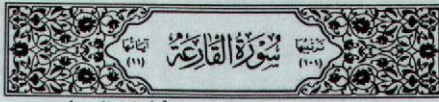 ترتيبها (١٠١) سُورَةُ القَارِعَةِ آياتها (١١)